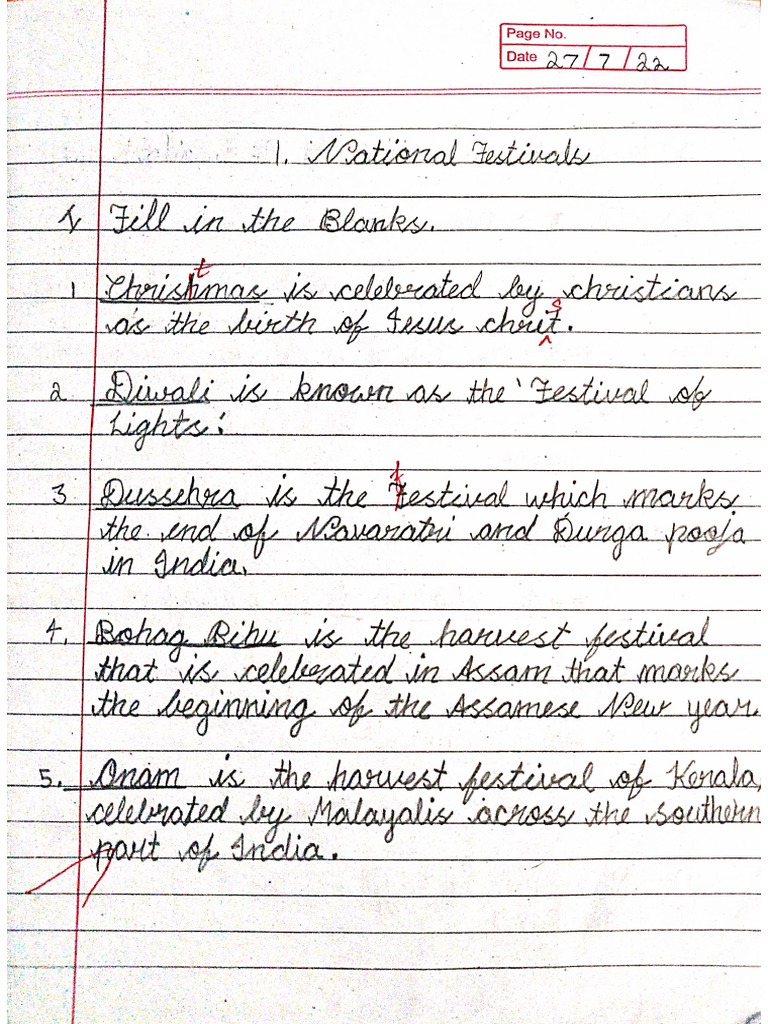 Page No.
Date 27/7/22
1. National Festivals
I Fill in the Blanks.
1 Christmas is celebrated by christians
as the birth of Jesus christ.
2 Diwali is known as the 'Festival of
Lights'.
3 Dussehra is the festival which marks
the end of Navaratri and Durga pooja
in India.
4. Bohag Bihu is the harvest festival
that is celebrated in Assam that marks
the beginning of the Assamese New year.
5. Onam is the harvest festival of Kerala,
celebrated by Malayalis across the southern
part of India.